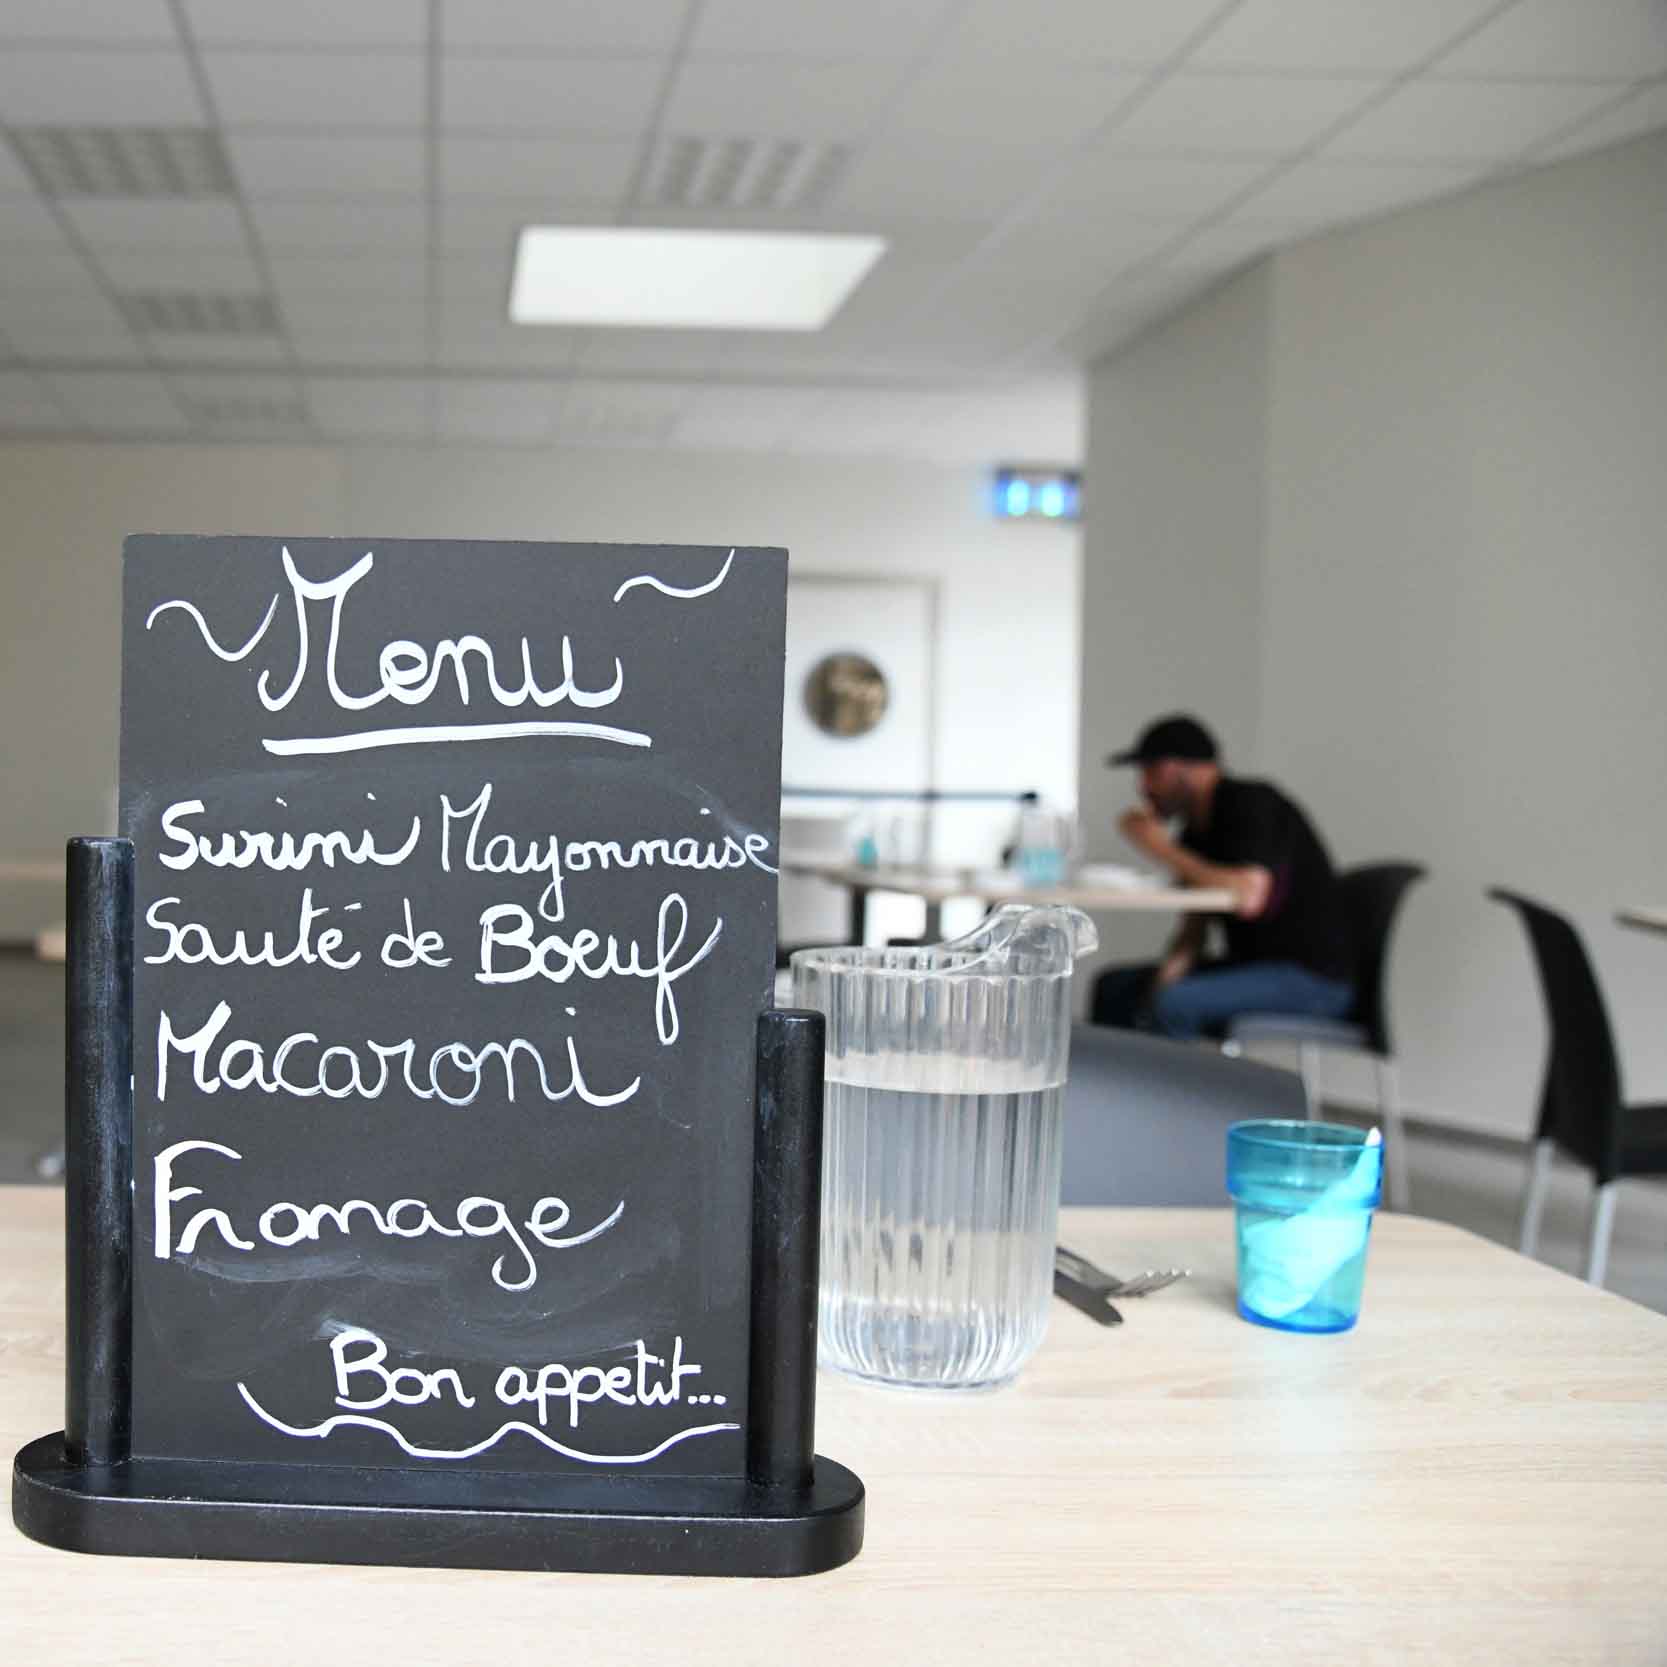 Menu
Surini Mayonnaise
Sauté de Boeuf
Macaroni
Fromage
Bon appetit...